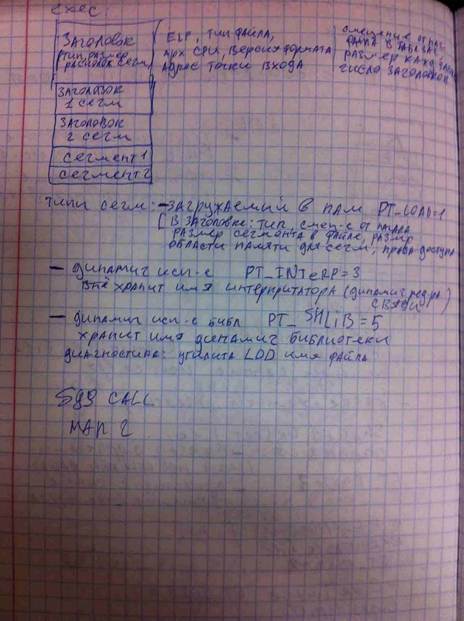 exec:
Заголовок
тип размер
располож сегм
ELF, тип файла,
Арх CPU, Версия формата
Адрес точки входа
смещение от нач
файла в табл
размер кажд
число заголовков
Заголовок
1 сегм
Заголовок
2 сегм
Сегмент 1
Сегмент 2
Типы сегм: - загружаемый в пам PT_LOAD=1
[В заголовке: тип, смещ-е от начала
размер сегмента в файле, размер
области памяти для сегм, права доступа
- динамич исп-е PT_INTERP=3
хранит имя интерпритатора (динамич редра)
связи
- динамич исп-е библ PT_SHLIB=5
хранит имя динамич библиотеки
диагностика: утилита LDD имя файла
SyS CALL
MAN 2